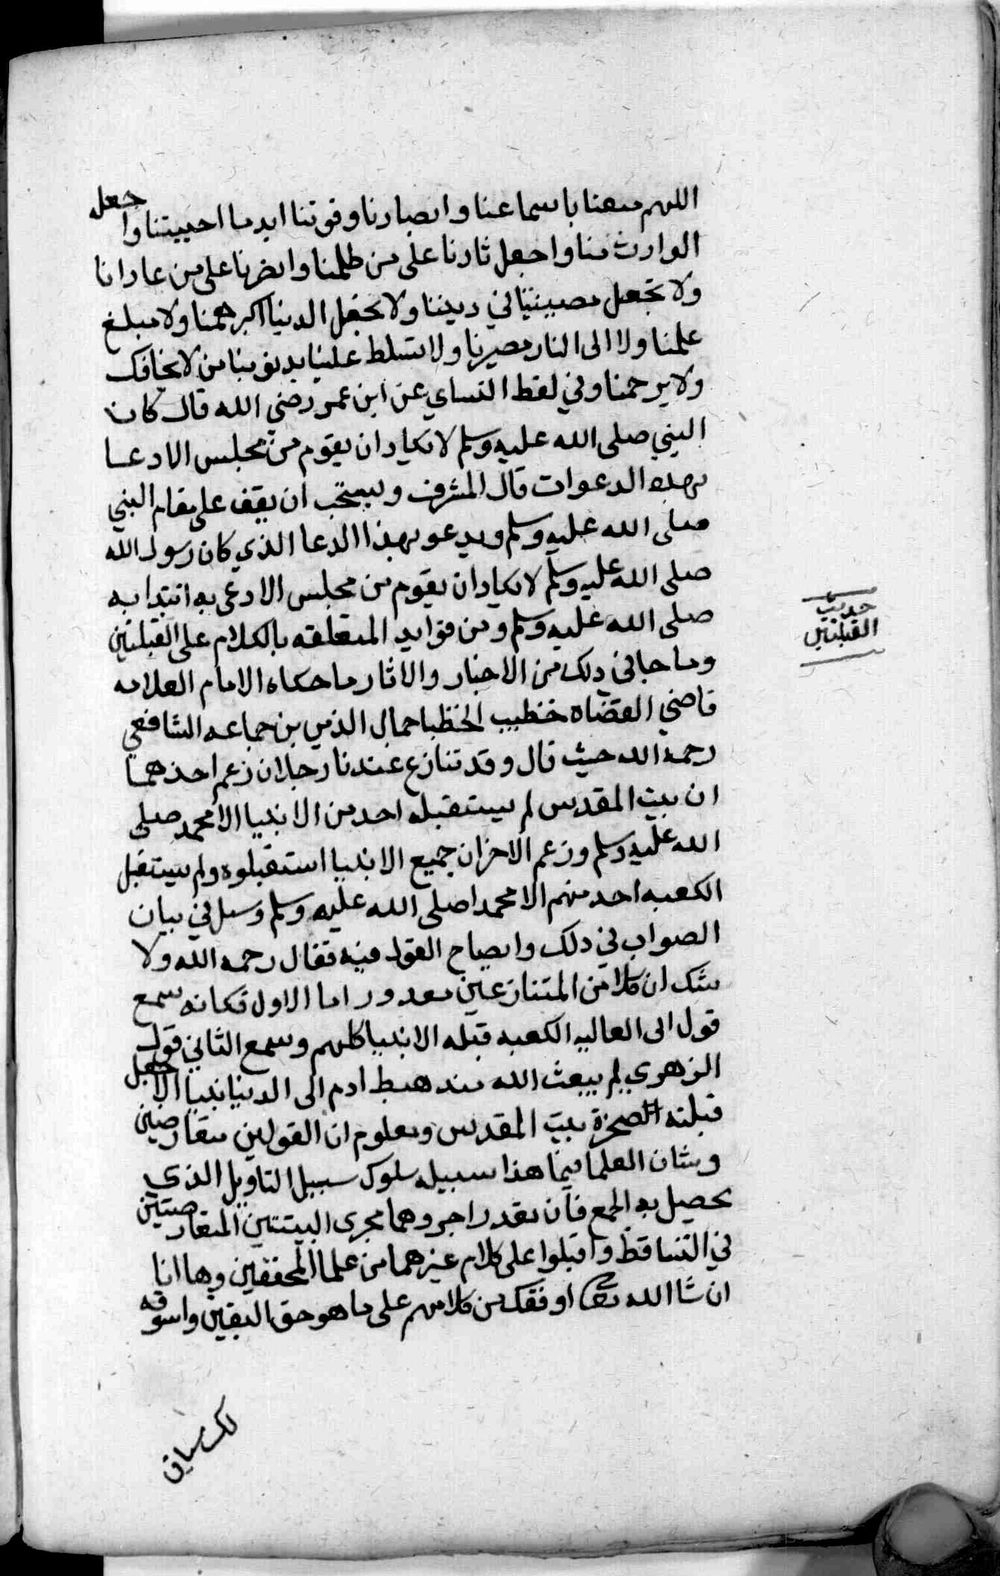 اللهم متعنا باسماعنا وابصارنا وقوتنا ابد ما احييتنا واجعله
الوارث منا واجعل ثارنا على من ظلمنا وانصرنا على من عادانا
ولا تجعل مصيبتنا في ديننا ولا تجعل الدنيا اكبر همنا ولا مبلغ
علمنا ولا الى النار مصيرنا ولا تسلط علينا بذنوبنا من لا يخافك
ولا يرحمنا وفي لفظ النساي عن ابن عمر رضي الله قال كان
النبي صلى الله عليه وسلم لا يكاد ان يقوم من مجلس الا دعا
بهذه الدعوات قال المشرف ويستحب ان يقف على مقام النبي
صلى الله عليه وسلم ويدعو بهذا الدعا الذي كان رسول الله
صلى الله عليه وسلم لا يكاد ان يقوم من مجلس الا دعى به اقتدا به
صلى الله عليه وسلم ومن فوايد المتعلقه بالكلام على القبلتين
وما جا في ذلك من الاخبار والاثار ما حكاه الامام العلامه
قاضي القضاه خطيب الخطبا جمال الدين بن جماعه الشافعي
رحمه الله حيث قال وقد تنازع عندنا رجلان زعم احدهما
ان بيت المقدس لم يستقبله احد من الانبيا الا محمد صلى
الله عليه وسلم وزعم الاخر ان جميع الانبيا استقبلوه ولم يستقبل
الكعبه احد منهم الا محمدا صلى الله عليه وسلم وسيل في بيان
الصواب في ذلك وايضاح القول فيه فقال رحمه الله ولا
شك ان كلا من المتنازعين معذور اما الاول فكانه سمع
قول ابي العاليه الكعبه قبله الانبيا كلهم وسمع الثاني قول
الزهري لم يبعث الله منذ هبط ادم الى الدنيا نبيا الا جعل
قبلته الصخرة بيت المقدس ومعلوم ان القولين متعارضين
وشان العلما فيما هذا سبيله سلوك سبيل التاويل الذي
يحصل به الجمع فان تعذر اجروهما مجرى البينتين المتعارضتين
في التساقط واقبلوا على كلام غيرهما من علما المحققين وها انا
ان شا الله تعالى اوفقك من كلامهم على ما هو حق اليقين واسوقه
لك سياق
حديث
القبلتين